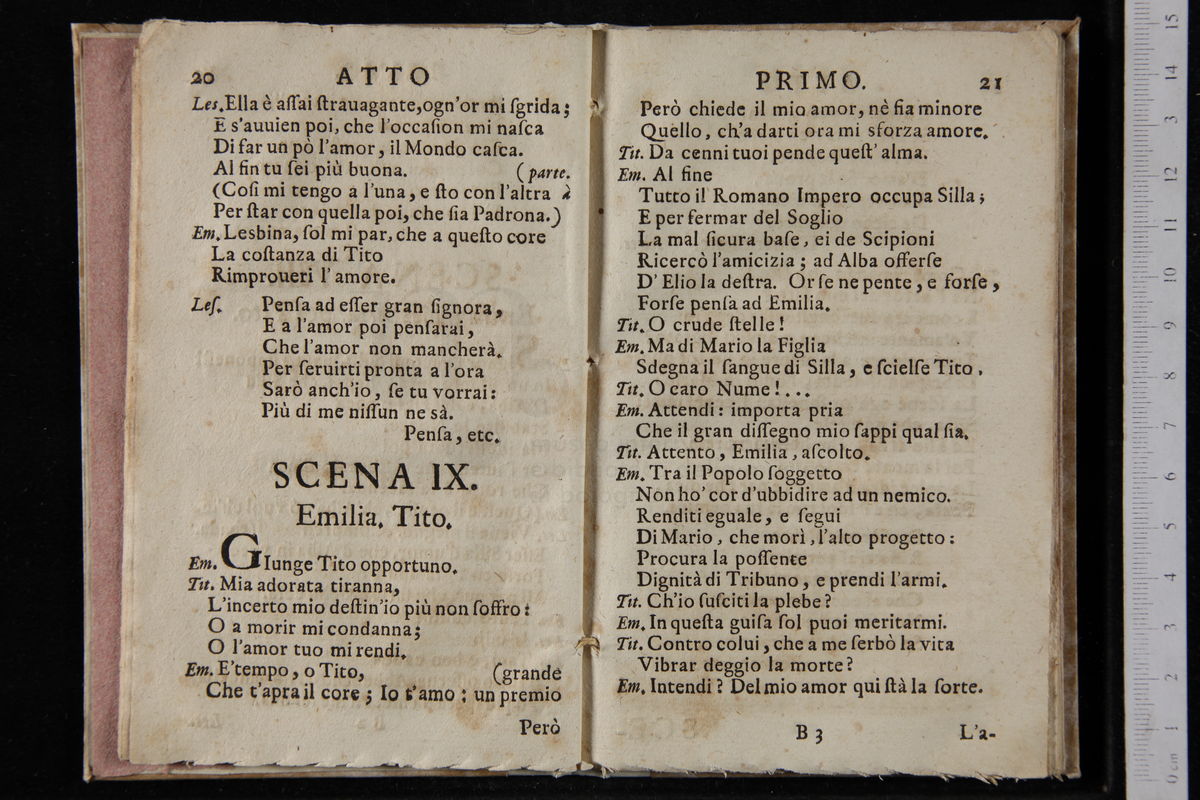 20 ATTO
Leſ. Ella è aſſai ſtrauagante, ogn'or mi ſgrida;
E s'auuien poi, che l'occaſion mi naſca
Di far un pò l'amor, il Mondo caſca.
Al fin tu ſei più buona. (parte.
(Coſi mi tengo a l'una, e ſto con l'altra à
Per ſtar con quella poi, che ſia Padrona.)
Em. Lesbina, ſol mi par, che a queſto core
La coſtanza di Tito
Rimproueri l'amore.
Leſ. Penſa ad eſſer gran ſignora,
E a l'amor poi penſarai,
Che l'amor non mancherà.
Per ſeruirti pronta a l'ora
Sarò anch'io, ſe tu vorrai:
Più di me niſſun ne sà.
Penſa, etc.
SCENA IX.
Emilia. Tito.
Em. GIunge Tito opportuno.
Tit. Mia adorata tiranna,
L'incerto mio deſtin'io più non ſoffro:
O a morir mi condanna;
O l'amor tuo mi rendi.
Em. E'tempo, o Tito, (grande
Che t'apra il core; Io t'amo: un premio
Però
PRIMO. 21
Però chiede il mio amor, nè ſia minore
Quello, ch'a darti ora mi sforza amore.
Tit. Da cenni tuoi pende queſt'alma.
Em. Al fine
Tutto il Romano Impero occupa Silla;
E per fermar del Soglio
La mal ſicura baſe, ei de Scipioni
Ricercò l'amicizia; ad Alba offerſe
D'Elio la deſtra. Or ſe ne pente, e forſe,
Forſe penſa ad Emilia.
Tit. O crude ſtelle!
Em. Ma di Mario la Figlia
Sdegna il ſangue di Silla, e ſcielſe Tito.
Tit. O caro Nume!...
Em. Attendi: importa pria
Che il gran diſſegno mio ſappi qual ſia.
Tit. Attento, Emilia, aſcolto.
Em. Tra il Popolo ſoggetto
Non ho' cor d'ubbidire ad un nemico.
Renditi eguale, e ſegui
Di Mario, che morì, l'alto progetto:
Procura la poſſente
Dignità di Tribuno, e prendi l'armi.
Tit. Ch'io ſuſciti la plebe?
Em. In queſta guiſa ſol puoi meritarmi.
Tit. Contro colui, che a me ſerbò la vita
Vibrar deggio la morte?
Em. Intendi? Del mio amor qui ſtà la ſorte.
B 3 L'a-
0 cm 1 2 3 4 5 6 7 8 9 10 11 12 3 14 15